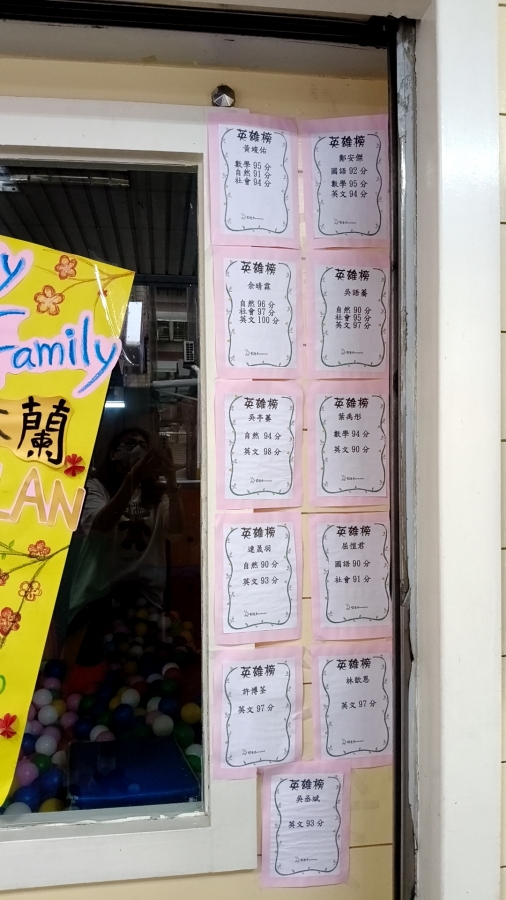 y
Family
蘭
LAN
英雄榜
黃竣佑
數學 95 分
自然 91 分
社會 94 分
英雄榜
鄭安傑
國語 92 分
數學 95 分
英文 94 分
英雄榜
余晴霖
自然 96 分
社會 97 分
英文 100 分
英雄榜
吳語蓁
自然 90 分
社會 95 分
英文 97 分
英雄榜
吳芊蓁
自然 94 分
英文 98 分
英雄榜
葉禹彤
數學 94 分
英文 90 分
英雄榜
連晟羽
自然 90 分
英文 93 分
英雄榜
屈愷君
國語 90 分
社會 91 分
英雄榜
許博荃
英文 97 分
英雄榜
林歆恩
英文 97 分
英雄榜
吳丞斌
英文 93 分